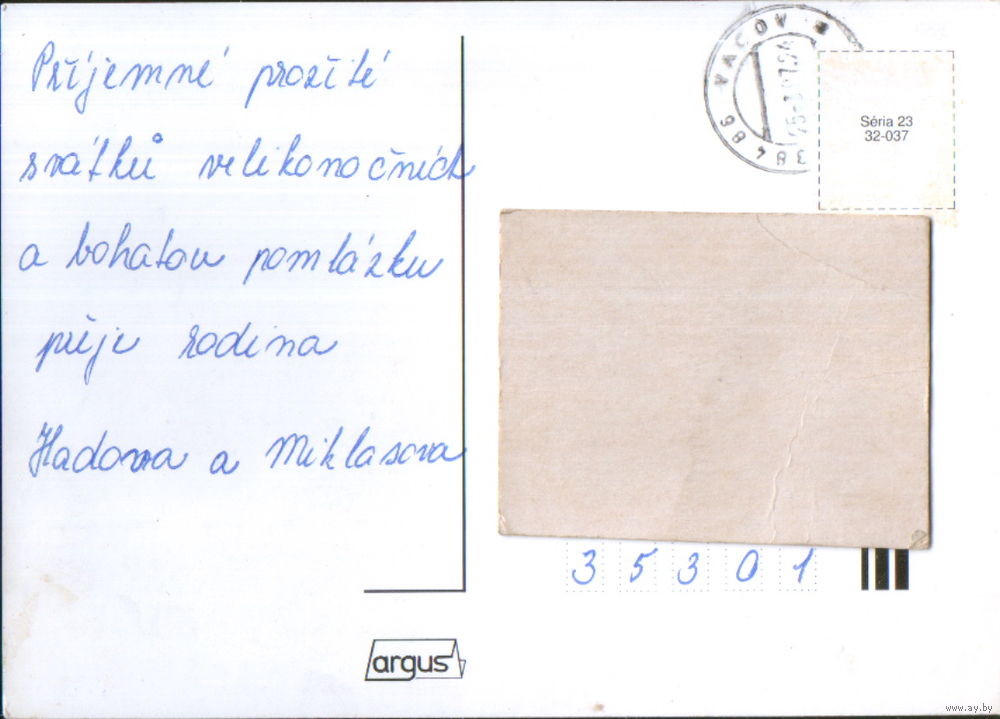 Příjemné prožité
svátků velikonočních
a bohatou pomlázku
přeje rodina
Hadova a Miklasova
384 86 VACOV
Séria 23
32-037
35301
argus
www.ay.by